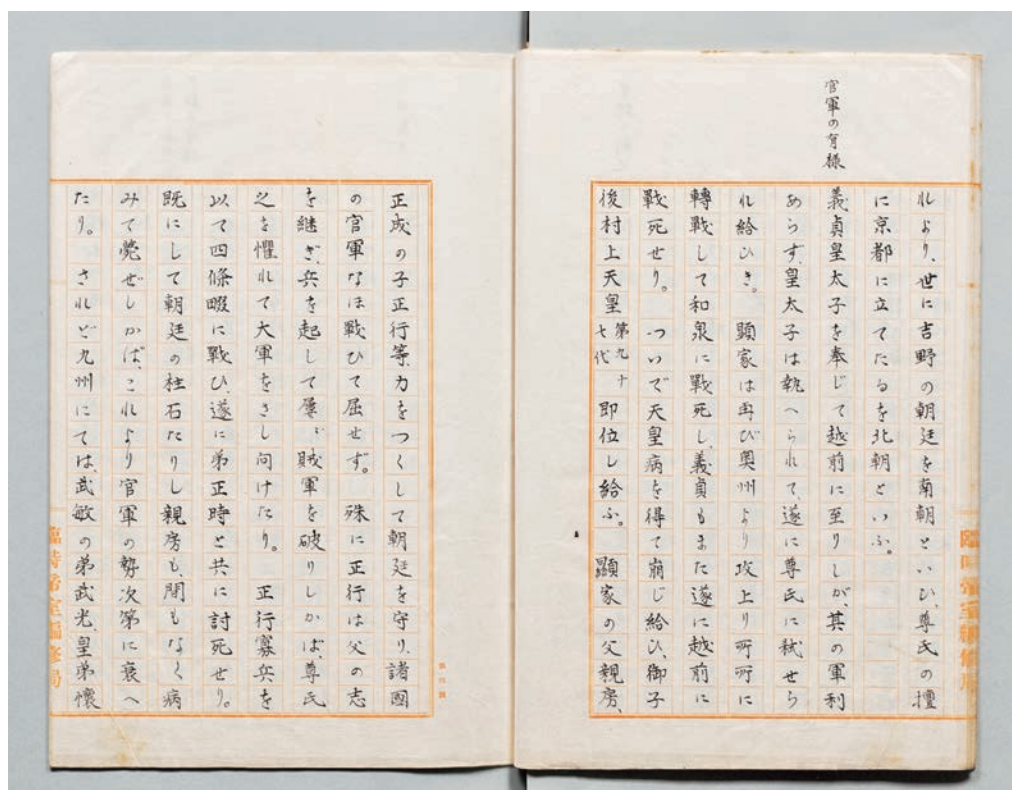 官軍の有様
れより、世に吉野の朝廷を南朝といひ、尊氏の擅
に京都に立てたるを北朝といふ。
義貞皇太子を奉じて越前に至りしが、其の軍利
あらず、皇太子は執へられて、遂に尊氏に弑せら
れ給ひき。 顯家は再び奧州より攻上り所所に
轉戰して和泉に戰死し、義貞もまた遂に越前に
戰死せり。 ついで天皇病を得て崩じ給ひ、御子
後村上天皇 第九十七代 即位し給ふ。 顯家の父親房、
正成の子正行等、力をつくして朝廷を守り、諸國
の官軍なほ戰ひて屈せず。 殊に正行は父の志
を繼ぎ、兵を起して屢〻賊軍を破りしかば、尊氏
之を懼れて大軍をさし向けたり。 正行寡兵を
以て四條畷に戰ひ遂に弟正時と共に討死せり。
既にして朝廷の柱石たりし親房も、間もなく病
みて薨ぜしかば、これより官軍の勢次第に衰へ
たり。 されど九州にては、武敏の弟武光、皇弟懷
臨時帝室編修局
臨時帝室編修局